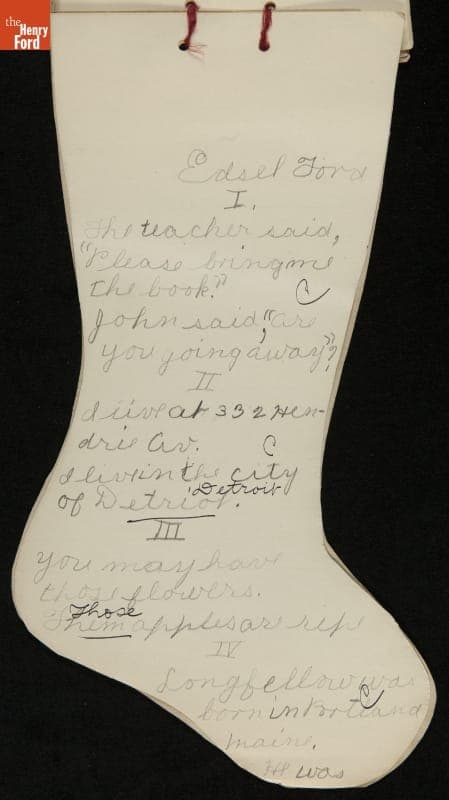 the
Henry
Ford
Edsel Ford
I.
The teacher said,
"Please bring me
the book." C
John said, "are
you going away"?
II
I live at 332 Hen-
drie Av. C
I live in the city
Detroit
of Detriot.
III
You may have
those flowers.
Those
Them apples are ripe
IV
Longfellow was
C
born in Portland
Maine.
He was